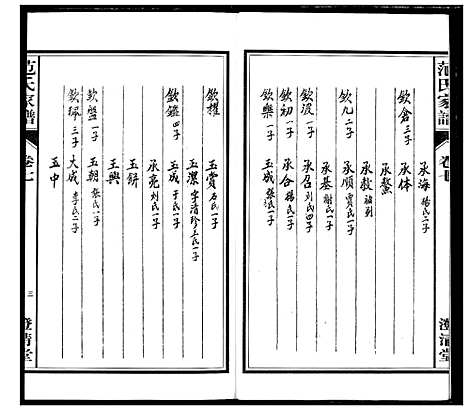 范氏家譜
卷七
澄清堂
承海 楊氏二子
欽倉 三子 承体
承鰲
承敖 胡氏
欽九 二子 承順 賈氏二子
承基 謝氏一子
欽汲 一子 承召 刘氏四子
欽初 一子 承合 楊氏一子
欽樂 一子 玉成 張氏一子
欽擢 玉賞 石氏一子
玉潔 字清珍 王氏一子
欽鑑 四子 玉成 于氏一子
承亮 刘氏一子
玉餅
玉興
欽盤 一子 玉朝 張氏一子
欽珮 三子 大成 李氏二子
玉中
范氏家譜
卷七
三
澄清堂